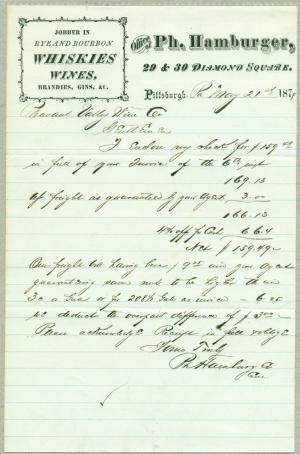 JOBBER IN
RYE AND BOURBON
WHISKIES
WINES,
BRANDIES, GINS, &C.
Office, Ph. Hamburger,
29 & 30 DIAMOND SQUARE.
Pittsburgh, Pa May 21st 187
Pleasant Valley Wine Co
I enclose my check for $159.49
in full of your Invoice of the 6th
169.13
off freight as guaranteed by your Agent 3.00
166.13
4% off for Cash 6.64
Net $159.49
Our freight bill having been $9 and your Agent
guaranteeing same not to be higher than
3c a Gall or for 208½ Galls as invoice 6.25
we deduct the overpaid difference of $3
Please acknowledge Receipt in full & oblige
Yours Truly
Ph Hamburger